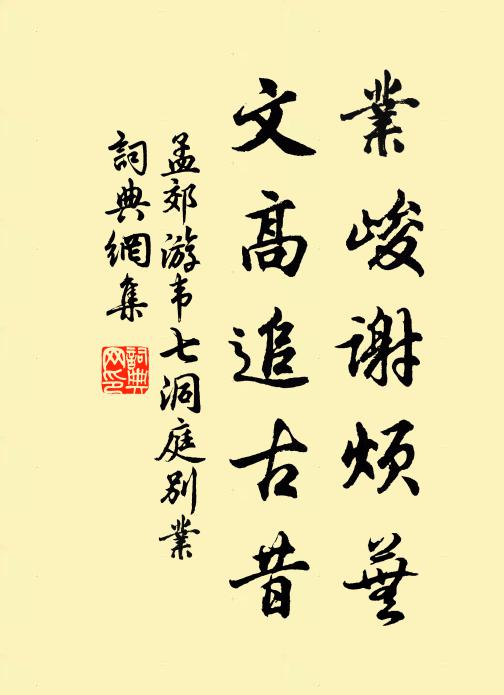 業峻謝煩蕪
文高追古昔
孟郊游韦七洞庭别業
詞典網集
詞典網印